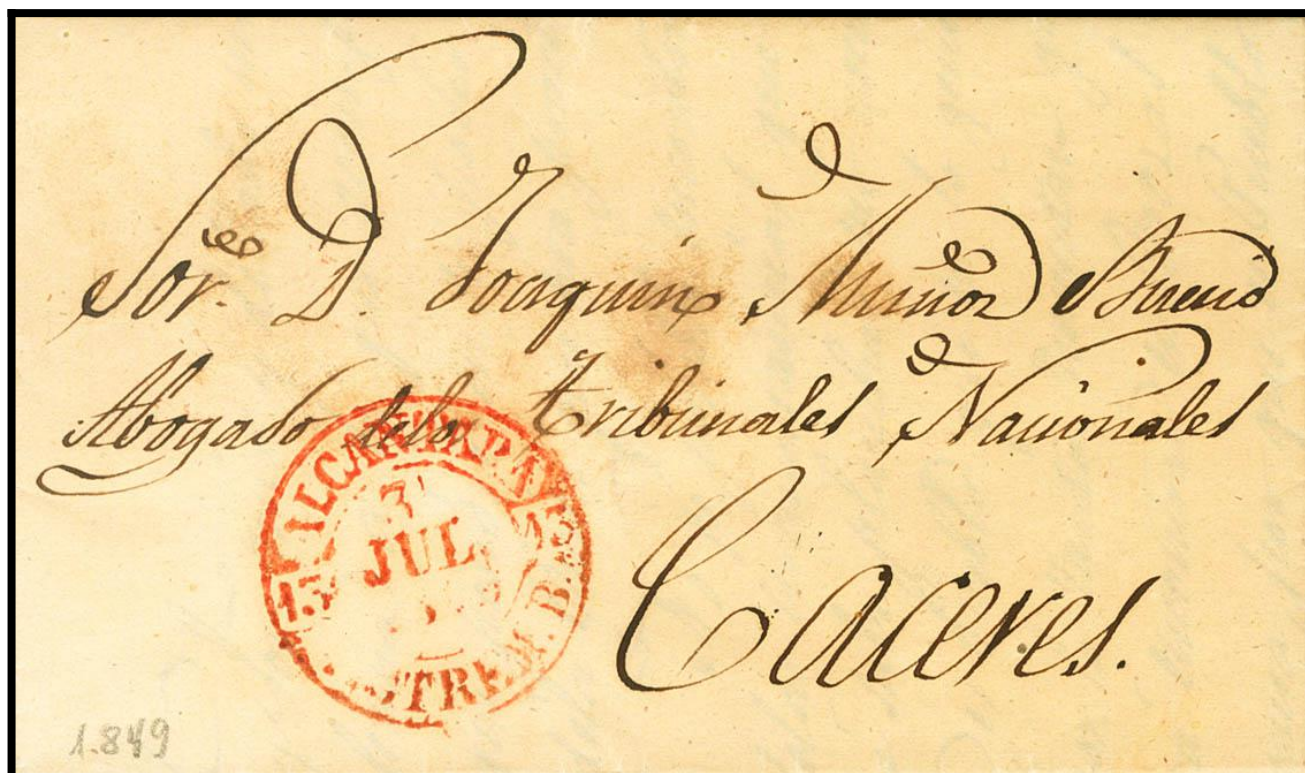 Sor. D. Joaquin Muñoz Bueno
Abogado delos tribunales Nacionales
Caceres.
ALCANTARA
3
JUL
13 13
ESTREM. B.
1.849